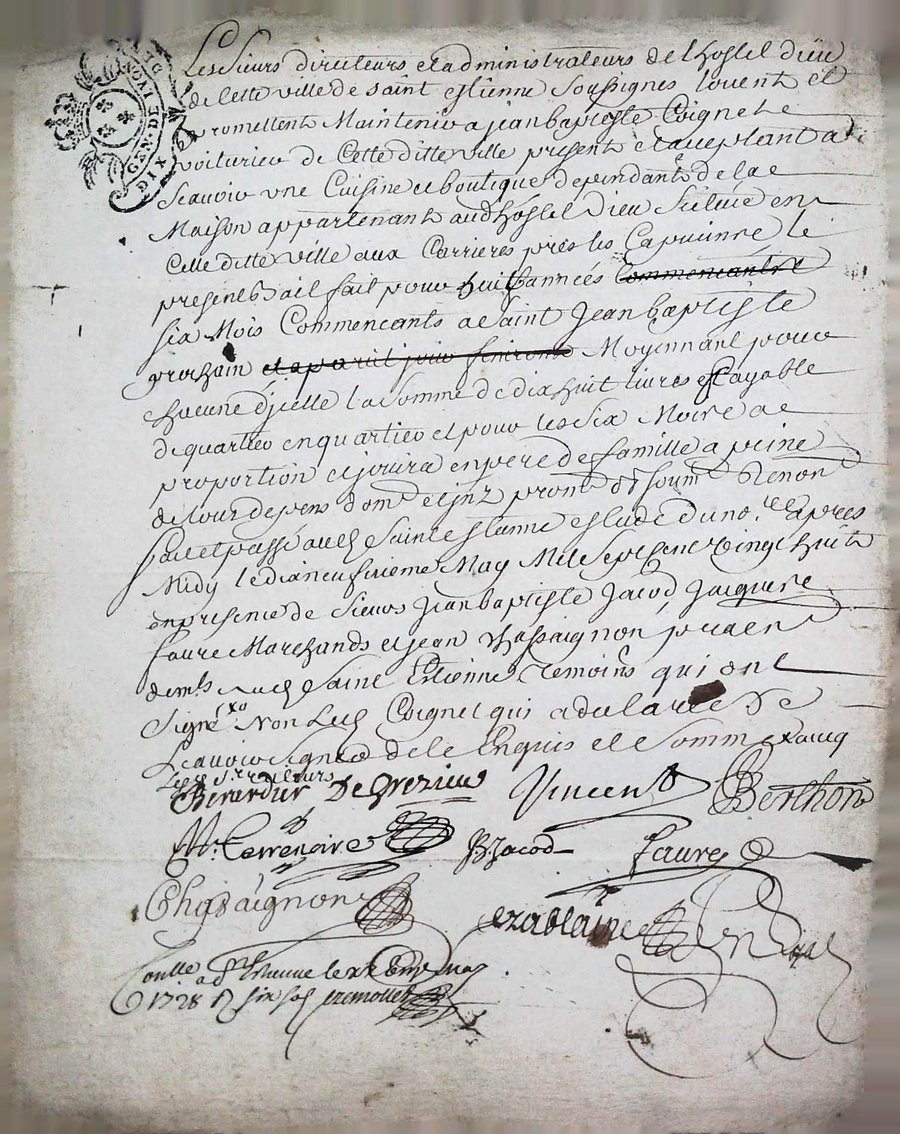 Les Sieurs directeurs et administrateurs de l hostel dieu
de Cette ville de saint estienne soussignes louent et
promettent Maintenir a jean baptiste Coignet
voiturier de Cette ditte ville present et aceptant a
Scauoir vne Cuisine et boutique dependants de la
Maison appartenant aud hostel Dieu Scituée en
Cette ditte ville aux Carrieres prés les Capucins le
present bail fait pour huit années Commencantes
six Mois Commencants a saint Jean baptiste
prochain Moyennant pour
chacune d'jcelle la somme de dix huit livres payable
de quartier en quartier et pour les six Mois a
proportion et jouira en pere de famille a peine
de tour depens dom. et jnz prom. soum. Renon
fait et passé aud Saint estienne estude du no.re apres
Midy le dix neufuieme May Mil Sept Cent vingt huit
en presence de Sieurs Jean baptiste Jacod Jacques
faure Marchands et jean Chassaignon
dem.ts aud Saint Estienne temoins qui ont
signé Non Led Coignet qui a declaré Ne
Scauoir signer de ce Enquis et Somm
Lesd Sr recteurs
Berardier De Grezieu Vincent Berthon
Terrenoire JBJacod Faure
Chasaignon ezablaine
Conlle a St Etienne le may
1728 R six sols
GAN. DI
DIX